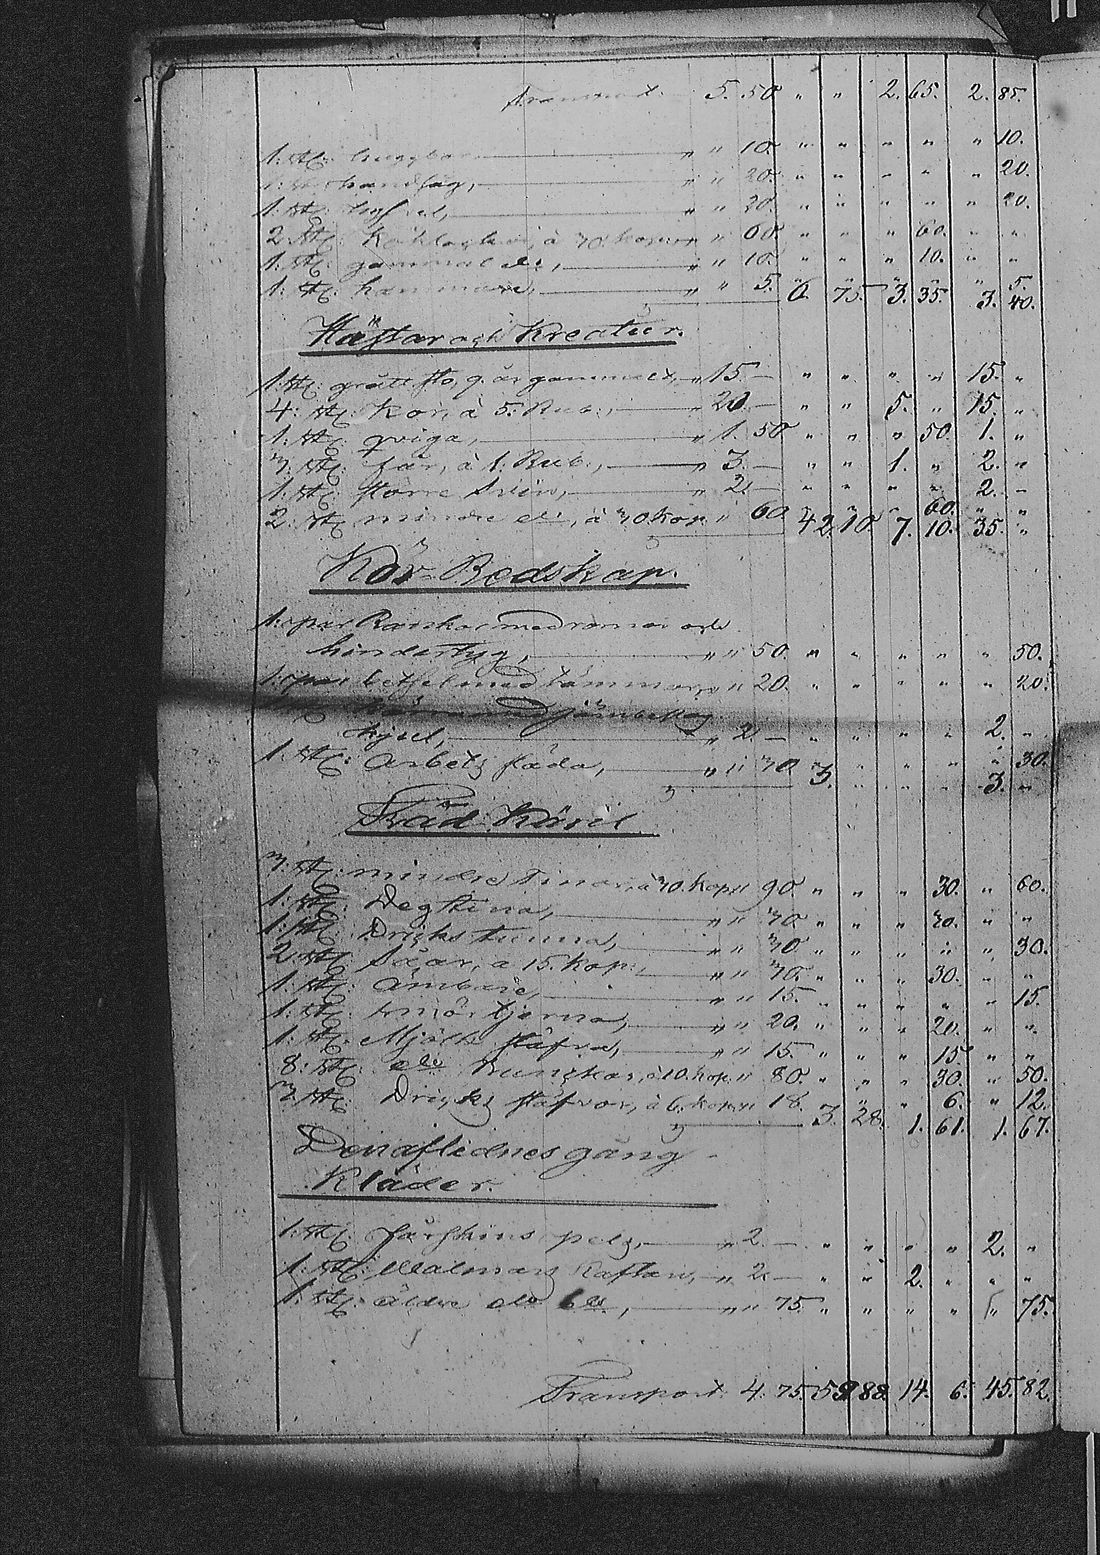 Transport 5. 50 " " 2. 65. 2. 85.
1. st: " " 10. " " " " " 10.
1. st handsåg, " " 20. " " " " " 20.
1. st: " " 20. " " " " " 20.
2. st: à 30 kopek " " 60 " " " 60. " "
1. st: gammal do, " " 10. " " " 10. " "
1. st: hammare, " " 5. 6. 75. 3. 35. " 5.
3. 40.
Hästar och Kreatur.
1. st: grått sto, 9. år gammalt, " 15. — " " " " 15. "
4. st: kor, à 5. Rub., " 20. — " " 5. " 15. "
1. st: qviga, " 1. 50 " " " 50. 1. "
3. st: får, à 1. Rub., " 3. — " " 1. " 2. "
1. st: större Svin, " 2. — " " " " 2. –
2. st: mindre do, à 30 kop. " 60 " " " 60. " "
42. 10 7. 10. 35. "
Kör-Redskap.
1. par Rankor med remmar och
hindertyg, " " 50. " " " " " 50.
1. betsel med tömmar, " " 20. " " " " " 20.
1. st
kjsel, " 2. — " " " " 2. "
1. st: Arbets släda, " " 30 3. " " " " 30.
3. "
Träd Käril
3. st: mindre Tinor, à 30. kop " 90 " " " 30. " 60.
1. st: Degtina, " " 30. " " " 30. " "
1. st: Dricks tunna, " " 30 " " " " " 30.
2. st: Såar, a 15. kop., " " 30. " " " 30. " "
1. st: ämbare, " " 15. " " " " " 15.
1. st: smör tjerna, " " 20. " " " 20. " "
1. st: Mjölk stäfva, " " 15. " " " 15 " "
8. st: do Bunckar, à 10. kop. " 80. " " " 30. " 50.
3. st: Dricks stäfvor, à 6. kop. " 18. " " " 6. " 12.
3. 28. 1. 61. 1. 67.
Den aflidnes gång
Kläder.
1. st: fårskins pelz, " 2. — " " " " 2. "
1. st: Walmars Kaftan, " 2. — " " 2. " " "
1. st: äldre do do, " " 75. " " " " " 75.
Transport 4. 75. 59 88. 14. 6. 45. 82.